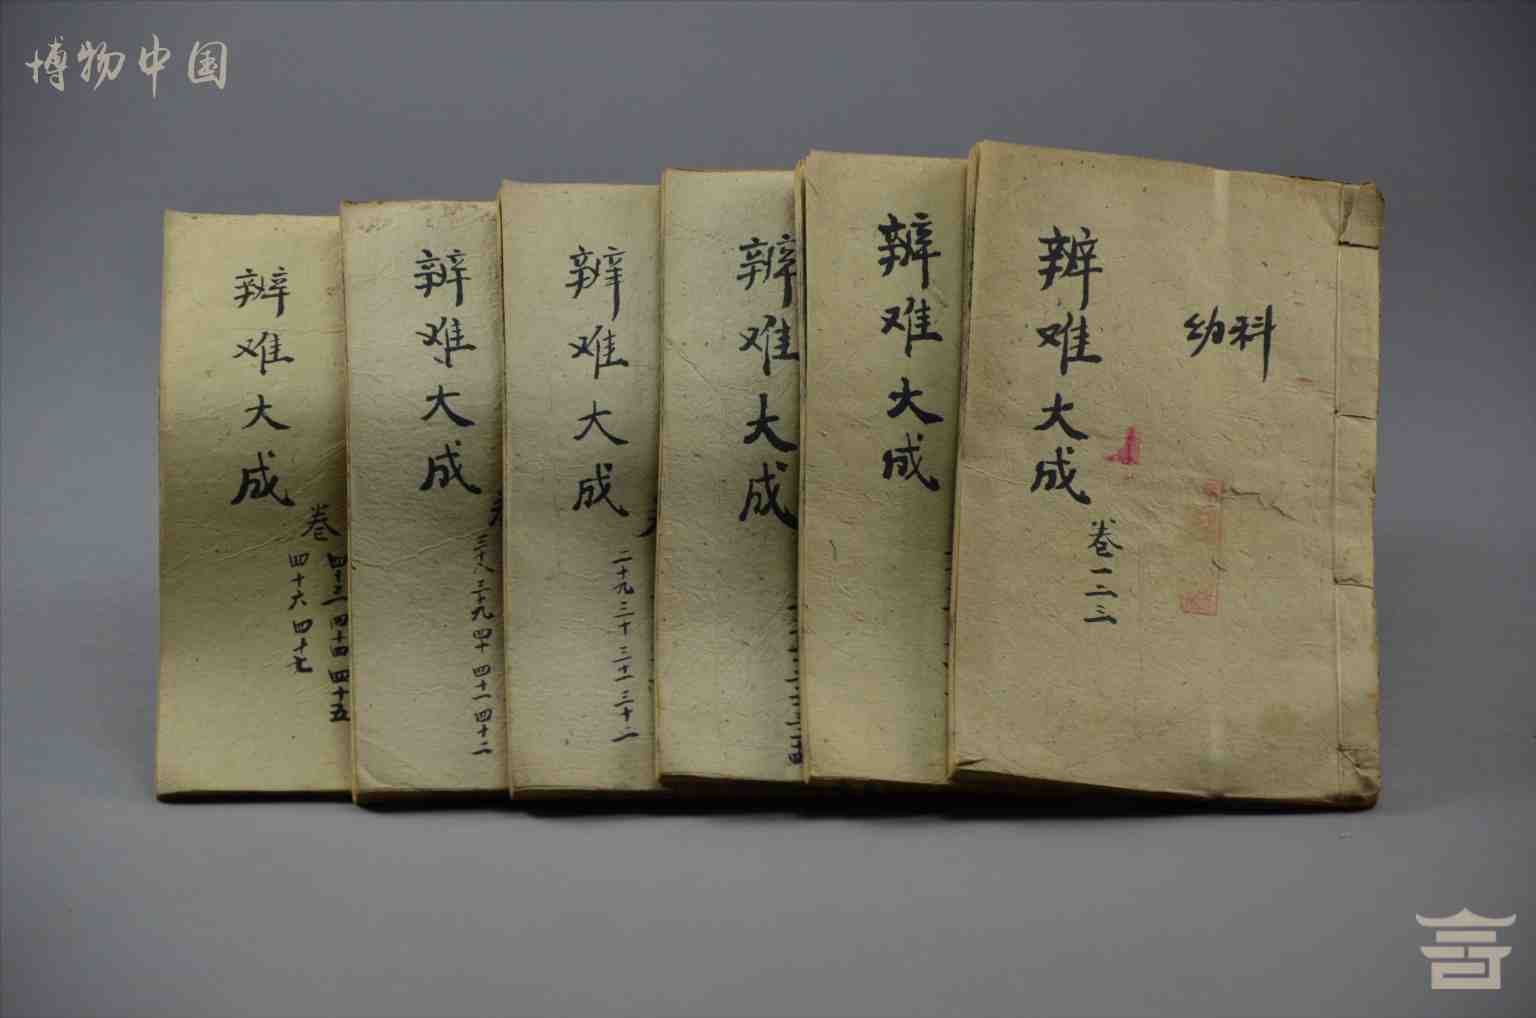 博物中国
幼科
辨难大成
卷一二三
辨难大成
辨难大成
辨难大成
二十九 三十 三十一 三十二
辨难大成
三十八 三十九 四十 四十一 四十二
辨难大成
卷
四十三 四十四 四十五
四十六 四十七